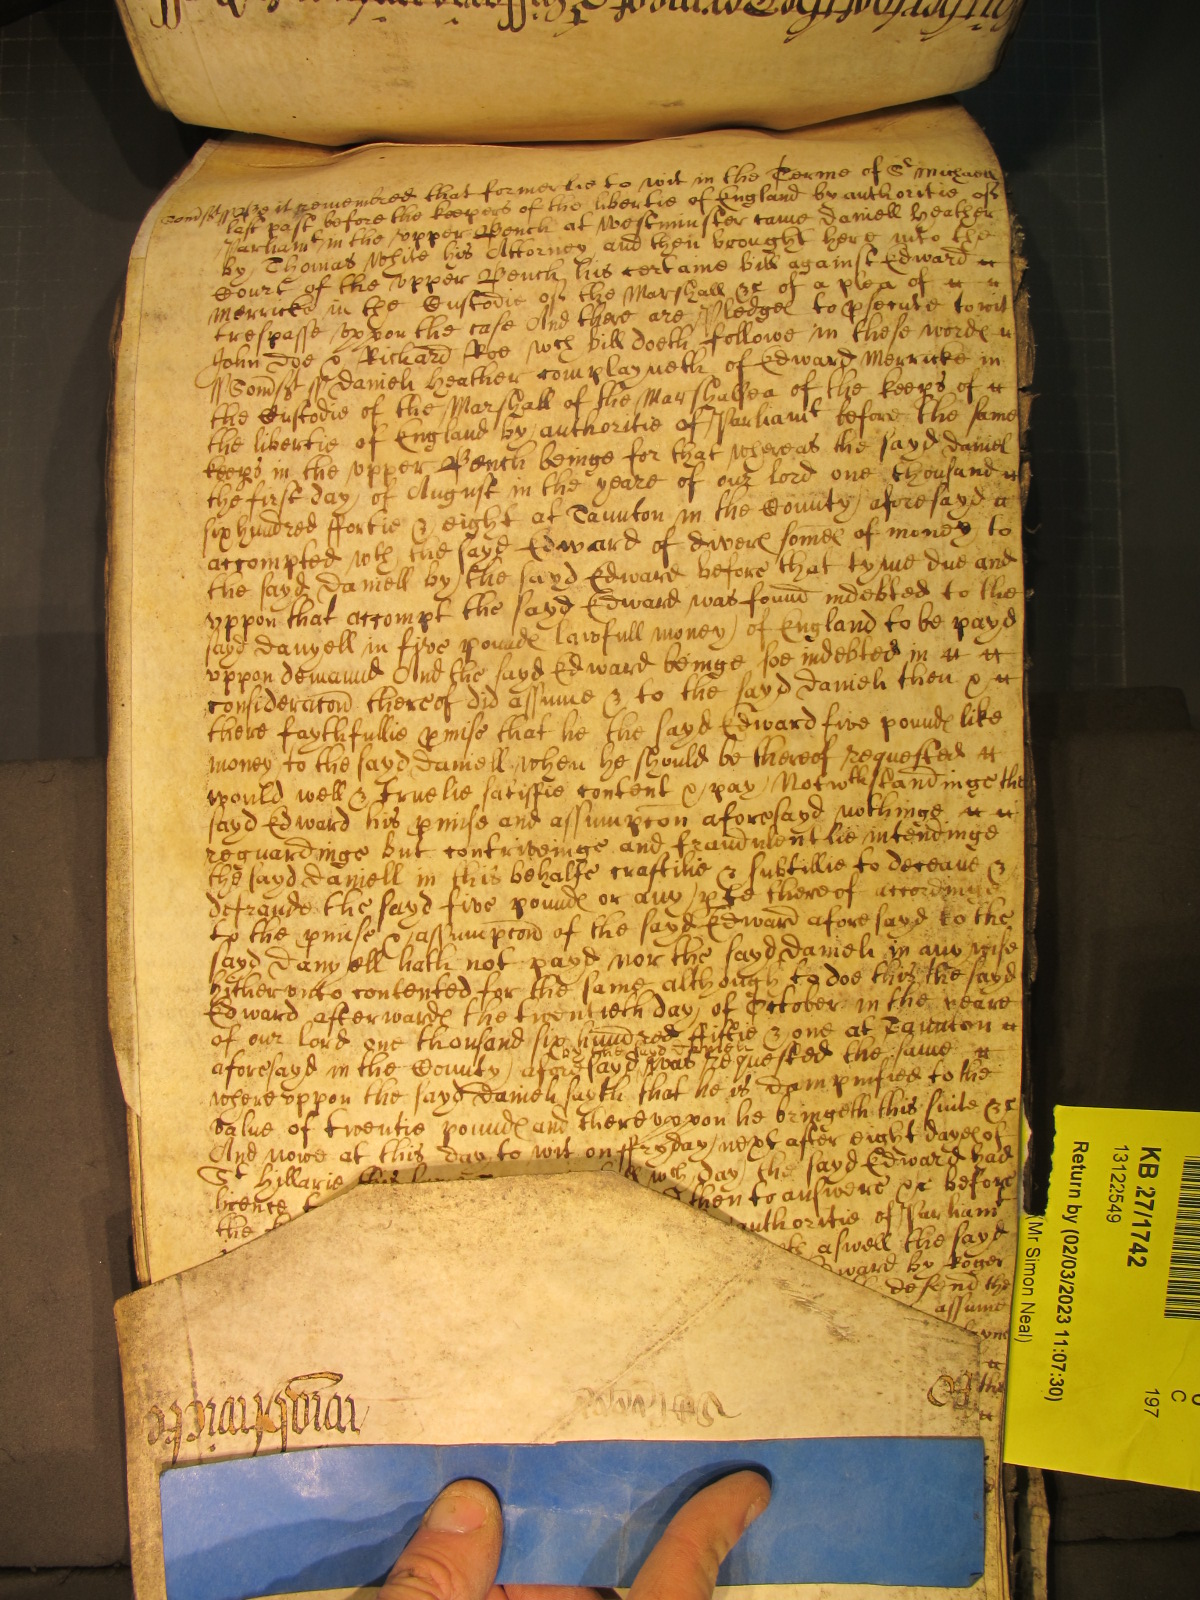 Somst ss Bee it remembred that formerlie to wit in the Terme of St Michaell
last past before the keepers of the libertie of England by authoritie of
Parliamt in the upper Bench at Westminster came Daniell Heather
by Thomas White his Attorney and then brought here into the
Court of the upper Bench his certaine bill against Edward
Merricke in the Custodie of the Marshall &c of a plea of
trespasse uppon the case And there are Pledges to psecute to wit
John Doe & Richard Roe wch bill doeth followe in these wordes
ss Somst ss Daniell Heather complayneth of Edward Merricke in
the Custodie of the Marshall of the Marshalsea of the keeps of
the libertie of England by authoritie of Parliamt before the same
keeps in the upper Bench beinge for that whereas the sayd Daniel
the first day of August in the yeare of our lord one thousand
six hundred fortie & eight at Taunton in the County aforesayd
accompted wth the sayd Edward of divers somes of money to
the sayd Daniell by the sayd Edward before that tyme due and
uppon that accompt the sayd Edward was found indebted to the
sayd Danyell in five poundes lawfull money of England to be payd
uppon demaund And the sayd Edward beinge soe indebted in
consideracon thereof did assume & to the sayd Daniell then &
there faythfullie pmise that he the sayd Edward five poundes like
money to the sayd Daniell when he should be thereof requested
would well & truelie satisfie content & pay Notwthstandinge the
sayd Edward his pmise and assumpcon aforesayd nothinge
reguardinge but contriveinge and fraudulentlie intendinge
the sayd Daniell in this behalfe craftilie & subtillie to deceave &
defraude the sayd five poundes or any pte thereof accordinge
to the pmise & assumpcon of the sayd Edward aforesayd to the
sayd Danyell hath not payd nor the sayd Daniell in any wise
hitherunto contented for the same although to doe this the sayd
Edward afterwardes the twentieth day of October in the yeare
of our lord one thousand six hundred fiftie & one at Taunton
by the sayd Daniell
aforesayd in the County aforesayd was requested the same
whereuppon the sayd Daniell sayth that he is dampnified to the
value of twentie poundes and thereuppon he bringeth this suite &c
And nowe at this day to wit on ffryday next after eight dayes of
St Hillarie this wch day the sayd Edward had
licence then to answere &c before
the authoritie of Parliamt
aswell the sayd
Edward by Roger
defend the
assume
the
KB 27/1742
13122549
Return by (02/03/2023 11:07:30)
(Mr Simon Neal)
C
197